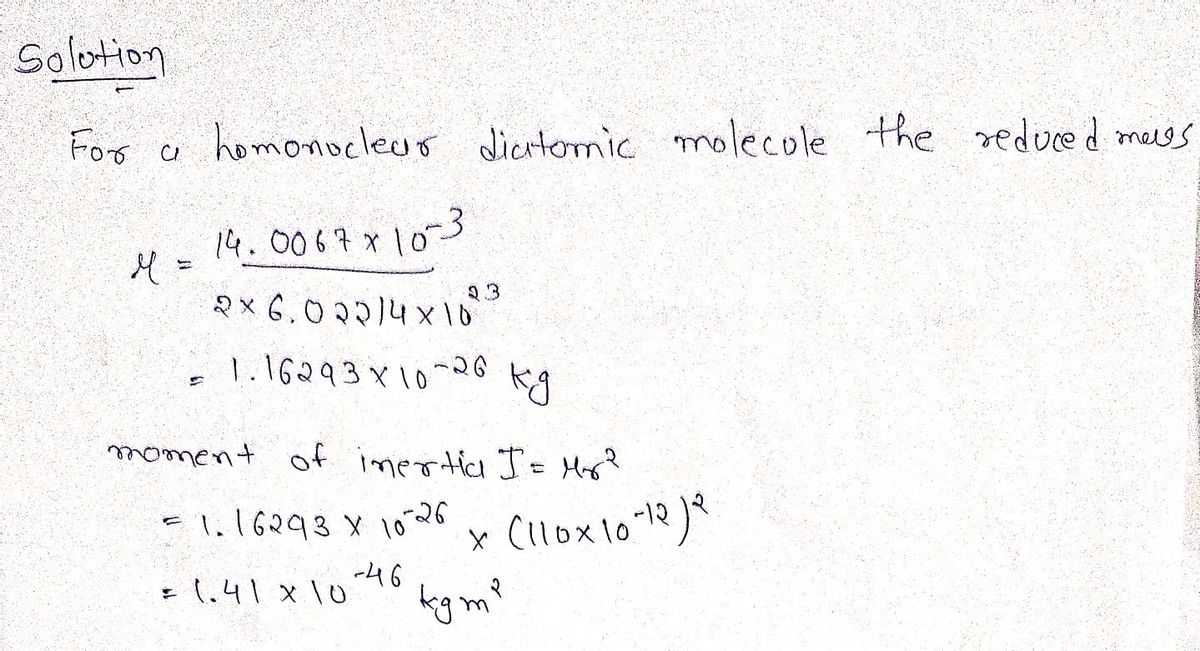 Solution
For a homonuclear diatomic molecule the reduced mass
μ = 14.0067 x 10^-3
2x 6.02214 x 10^23
= 1.16293 x 10^-26 kg
moment of inertia I = μr²
= 1.16293 x 10^-26 x (110x10^-12)²
= 1.41 x 10^-46 kg m²